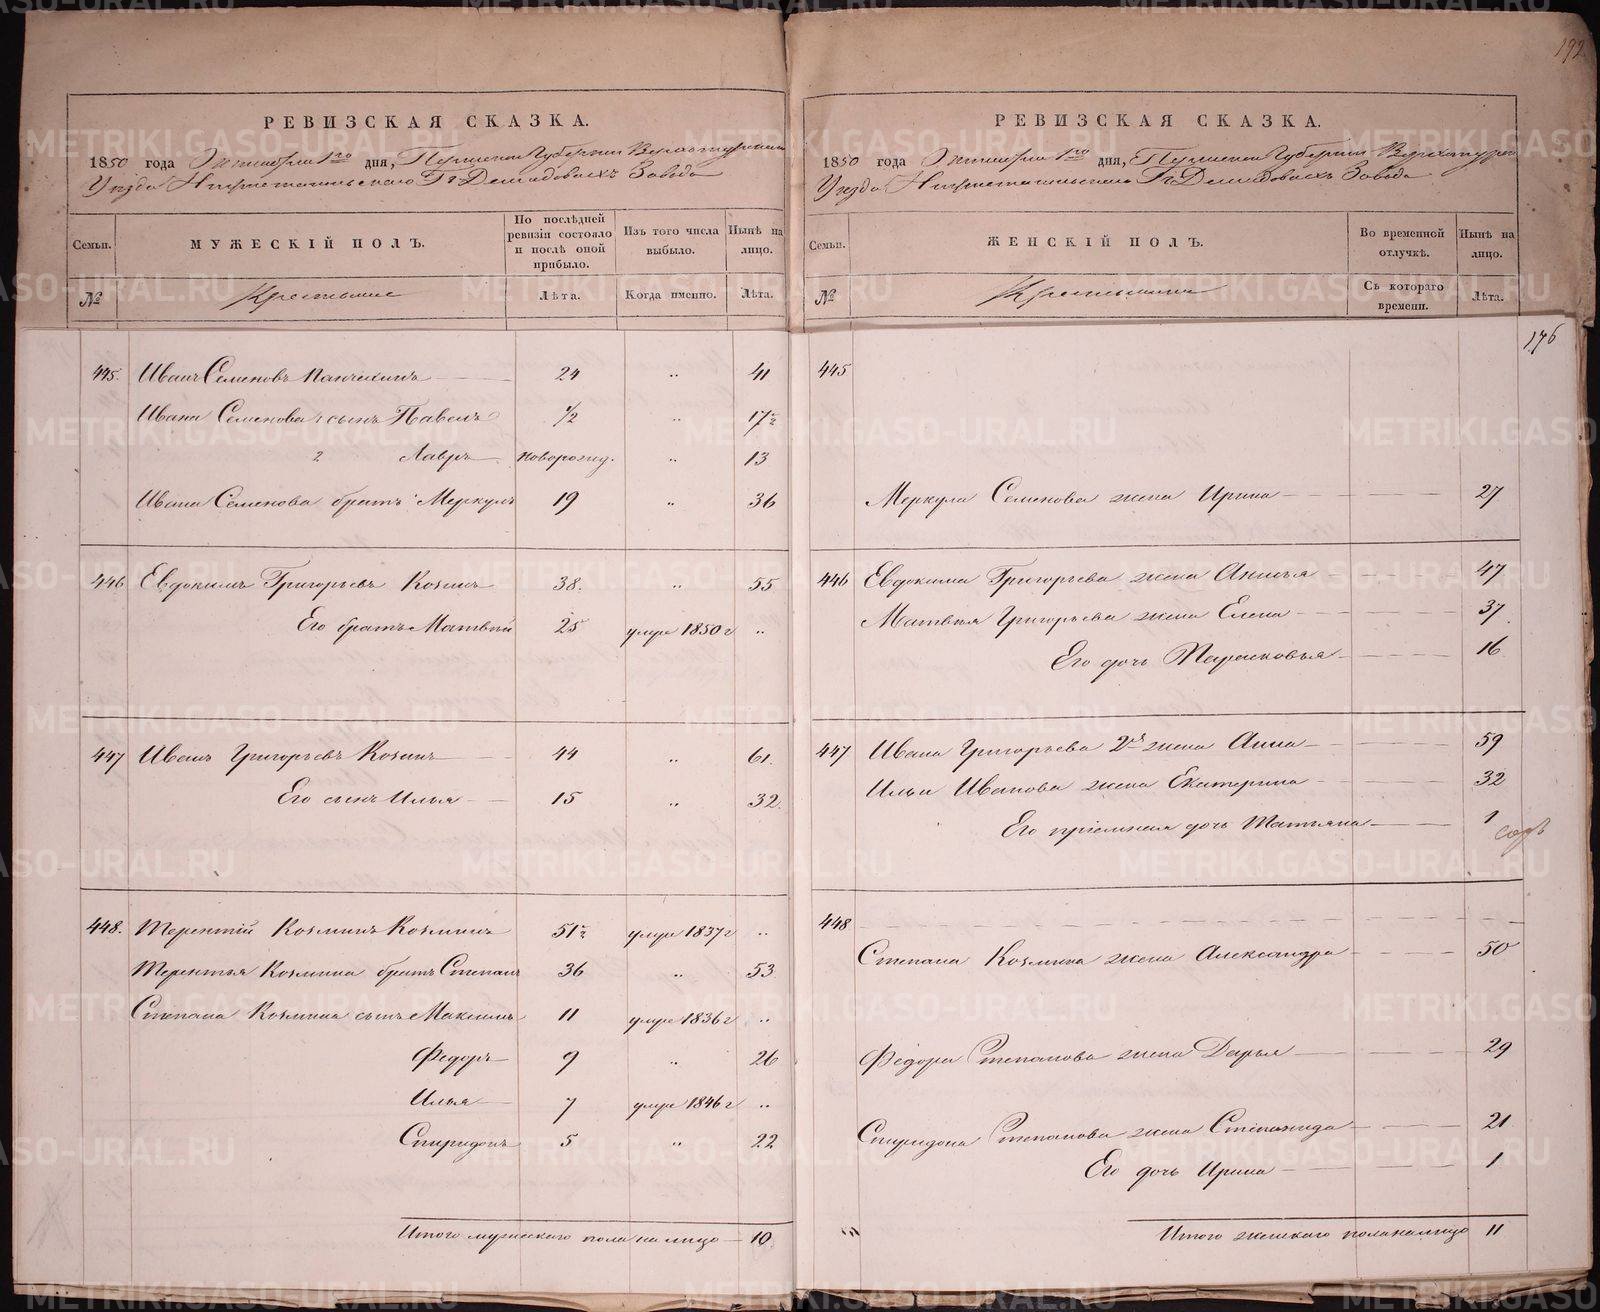 192
РЕВИЗСКАЯ СКАЗКА.
1850 года Октября 1го дня, Пермской Губернии Верхотурскаго
Уезда Нижнетагильскаго Гг. Демидовыхъ Завода
Семьи.
МУЖЕСКІЙ ПОЛЪ.
По послѣдней ревизіи состояло и послѣ оной прибыло.
Изъ того числа выбыло.
Нынѣ на лицо.
№
Крестьяне
Лѣта.
Когда именно.
Лѣта.
445. Иванъ Семеновъ 24 „ 41
Ивана Семенова 1 сынъ Павелъ 1/2 „ 17½
2 Лавръ новорожд. „ 13
Ивана Семенова братъ Меркулъ 19 „ 36
446 Евдокимъ Григорьевъ Козминъ 38. „ 55
Его братъ Матвѣй 25 умре 1850 г „
447 Иванъ Григорьевъ Козминъ 44 „ 61.
Его сынъ Илья 15 „ 32.
448. Терентій Козминъ Козминъ 51½ умре 1837 г „
Терентья Козмина братъ Степанъ 36 „ 53
Степана Козмина сынъ Максимъ 11 умре 1836 г „
Федоръ 9 „ 26
Илья 7 умре 1846 г „
Спиридонъ 5 „ 22
Итого мужескаго пола на лицо 10
РЕВИЗСКАЯ СКАЗКА.
1850 года Октября 1го дня, Пермской Губернии Верхотурскаго
Уезда Нижнетагильскаго Гг. Демидовыхъ Завода
Семьи.
ЖЕНСКІЙ ПОЛЪ.
Во временной отлучкѣ.
Нынѣ на лицо.
№
Крестьянки
Съ котораго времени.
Лѣта.
176
445
Меркула Семенова жена Ирина 27
446 Евдокима Григорьева жена Анисья 47
Матвѣя Григорьева жена Елена 37
Его дочь Парасковья 16
447 Ивана Григорьева 2я жена Анна 59
Ильи Иванова жена Екатерина 32
Его пріемная дочь Татьяна 1
448
Степана Козмина жена Александра 50
Федора Степанова жена Дарья 29
Спиридона Степанова жена Степанида 21
Его дочь Ирина 1
Итого женскаго пола на лицо 11
METRIKI.GASO-URAL.RU